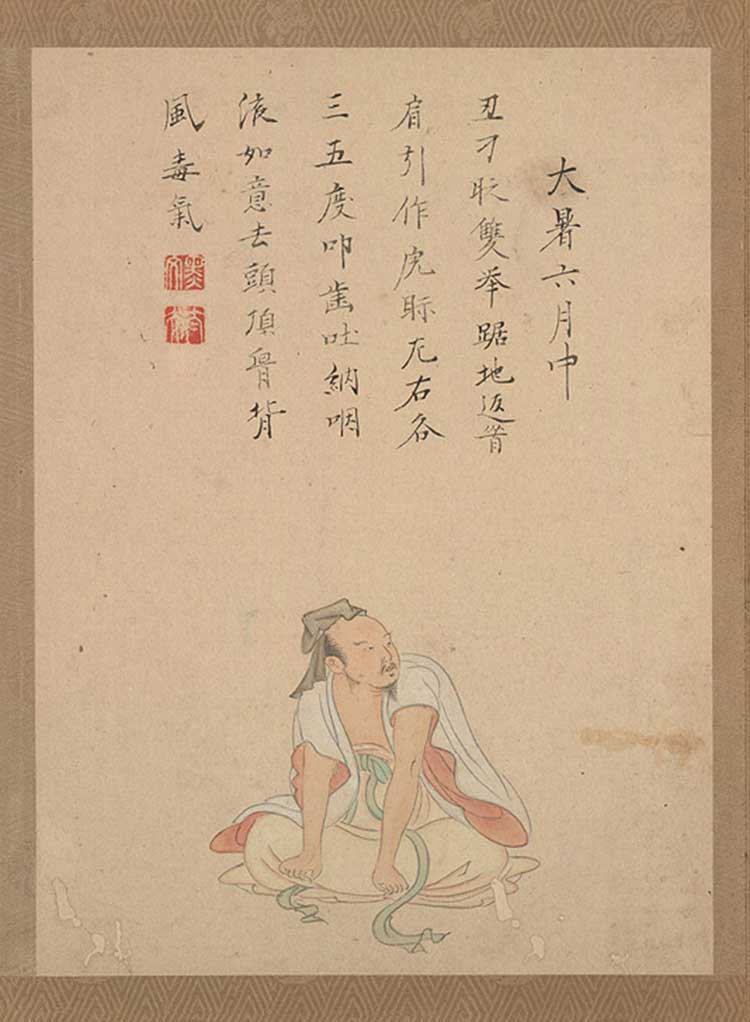 大暑六月中
丑刁雙拳踞地返首
肩引作虎眎左右各
三五度叩齒吐納咽
液如意去頭頂胷背
風毒氣